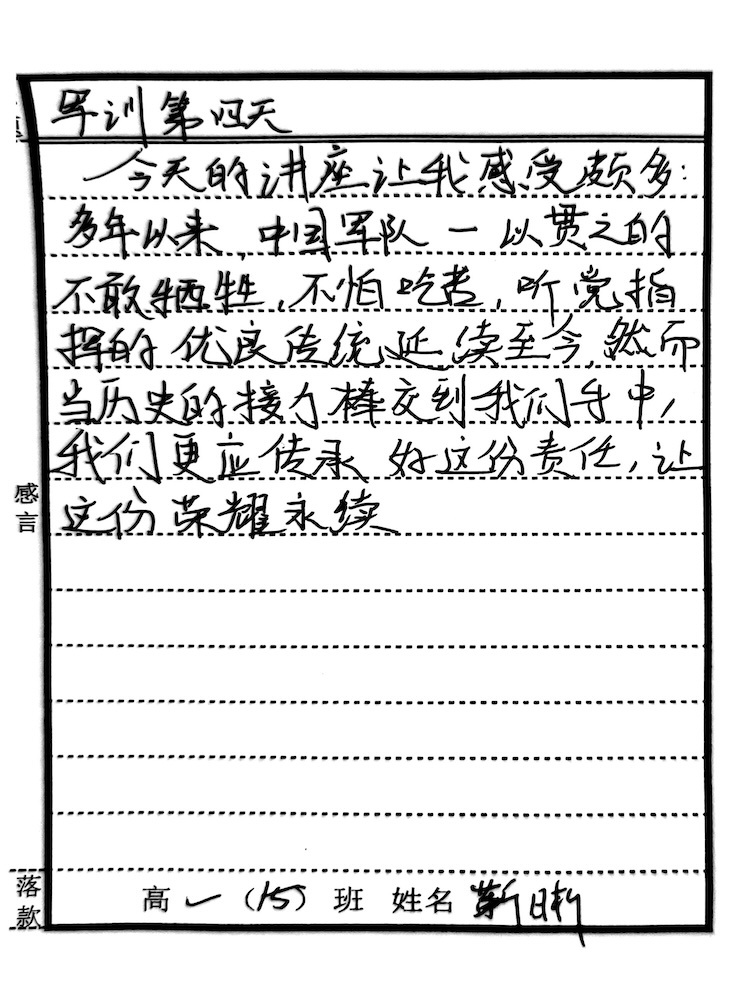 军训第四天
今天的讲座让我感受颇多：
多年以来，中国军队一以贯之的
不敢牺牲，不怕吃苦，听党指
挥的优良传统延续至今，然而
当历史的接力棒交到我们手中，
我们更应传承好这份责任，让
这份荣耀永续
感言
落款
高一（15）班 姓名 靳晰